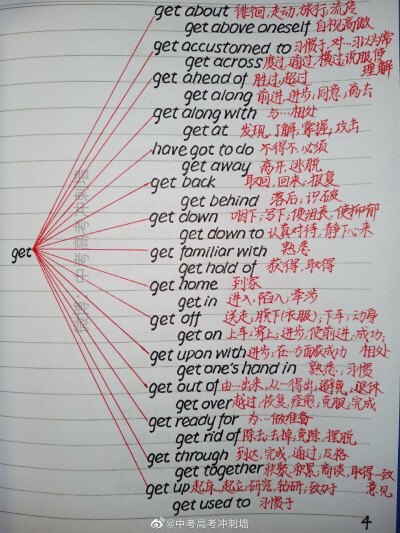 get about 徘徊,走动,旅行,流传
get above oneself 自视高傲
get accustomed to 习惯于,对…习以为常
get across 度过,通过,横过,说服,使理解
get ahead of 胜过,超过
get along 前进,进步,同意,离去
get along with 与…相处
get at 发现,了解,掌握,攻击
have got to do 不得不,必须
get away 离开,逃脱
get back 取回,回来,报复
get behind 落后;识破
get down 咽下;写下;使沮丧,使抑郁
get down to 认真对待,静下心来
get
get familiar with 熟悉
get hold of 获得,取得
get home 到家
get in 进入,陷入;牵涉
get off 送走;脱下(衣服);下车;动身
get on 上车;穿上;进步,使前进;成功;相处
get upon with 进步;在…方面获成功
get one's hand in 熟悉,习惯
get out of 由…出来,从…得出;避免,退休
get over 越过,恢复,痊愈,克服,完成
get ready for 为…做准备
get rid of 除去,去掉;免除,摆脱
get through 到达,完成,通过;及格
get together 积聚,积累;商谈,取得一致意见
get up 起床,起立;研究,钻研;致力于
get used to 习惯于
4
微博:中考高考冲刺墙
@中考高考冲刺墙